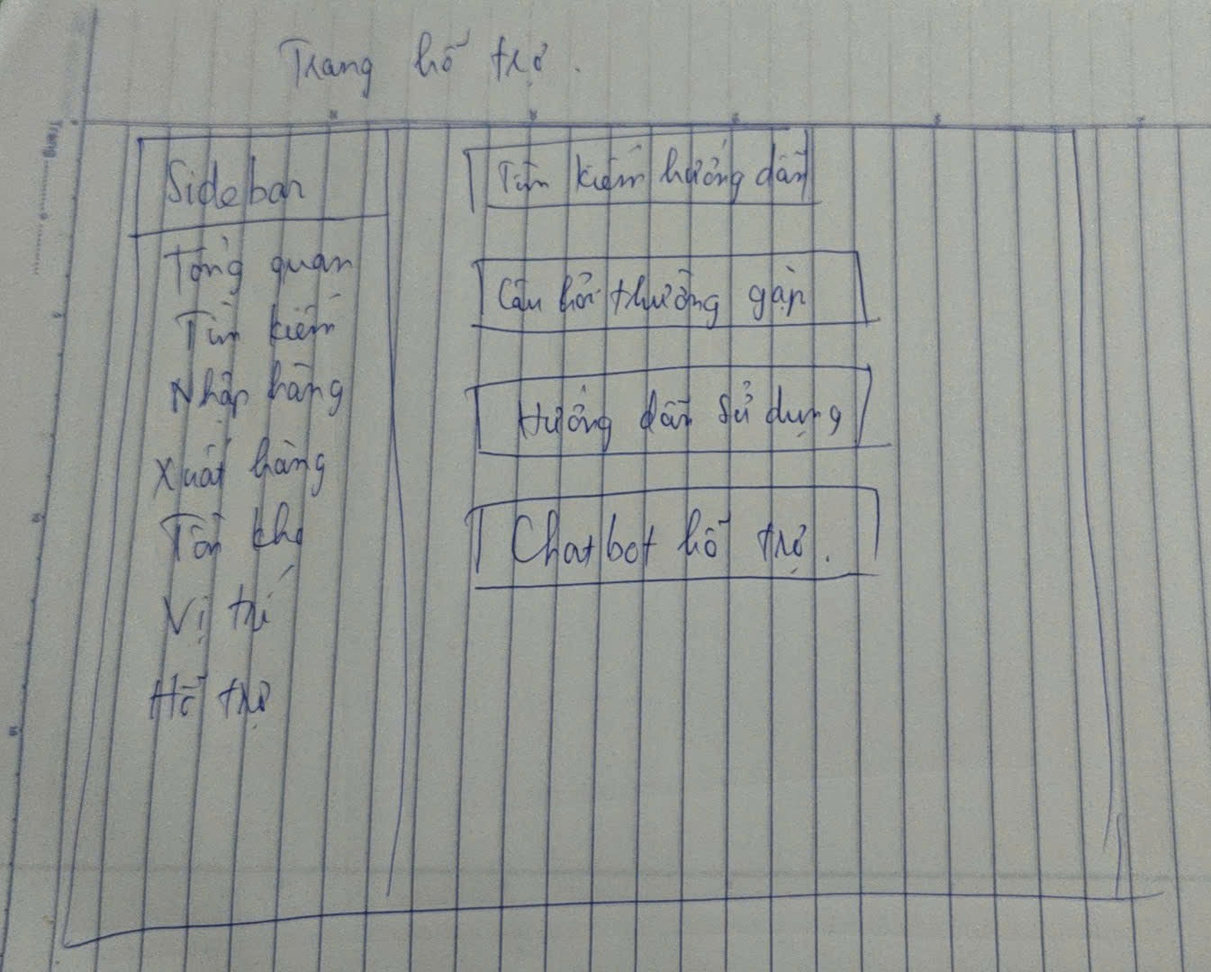 Trang hỗ trợ.
Trang
Sidebar
Tổng quan
Tìm kiếm
Nhập hàng
Xuất hàng
Tồn kho
Vị trí
Hỗ trợ
Tìm kiếm hướng dẫn
Câu hỏi thường gặp
Hướng dẫn sử dụng
Chatbot hỗ trợ.